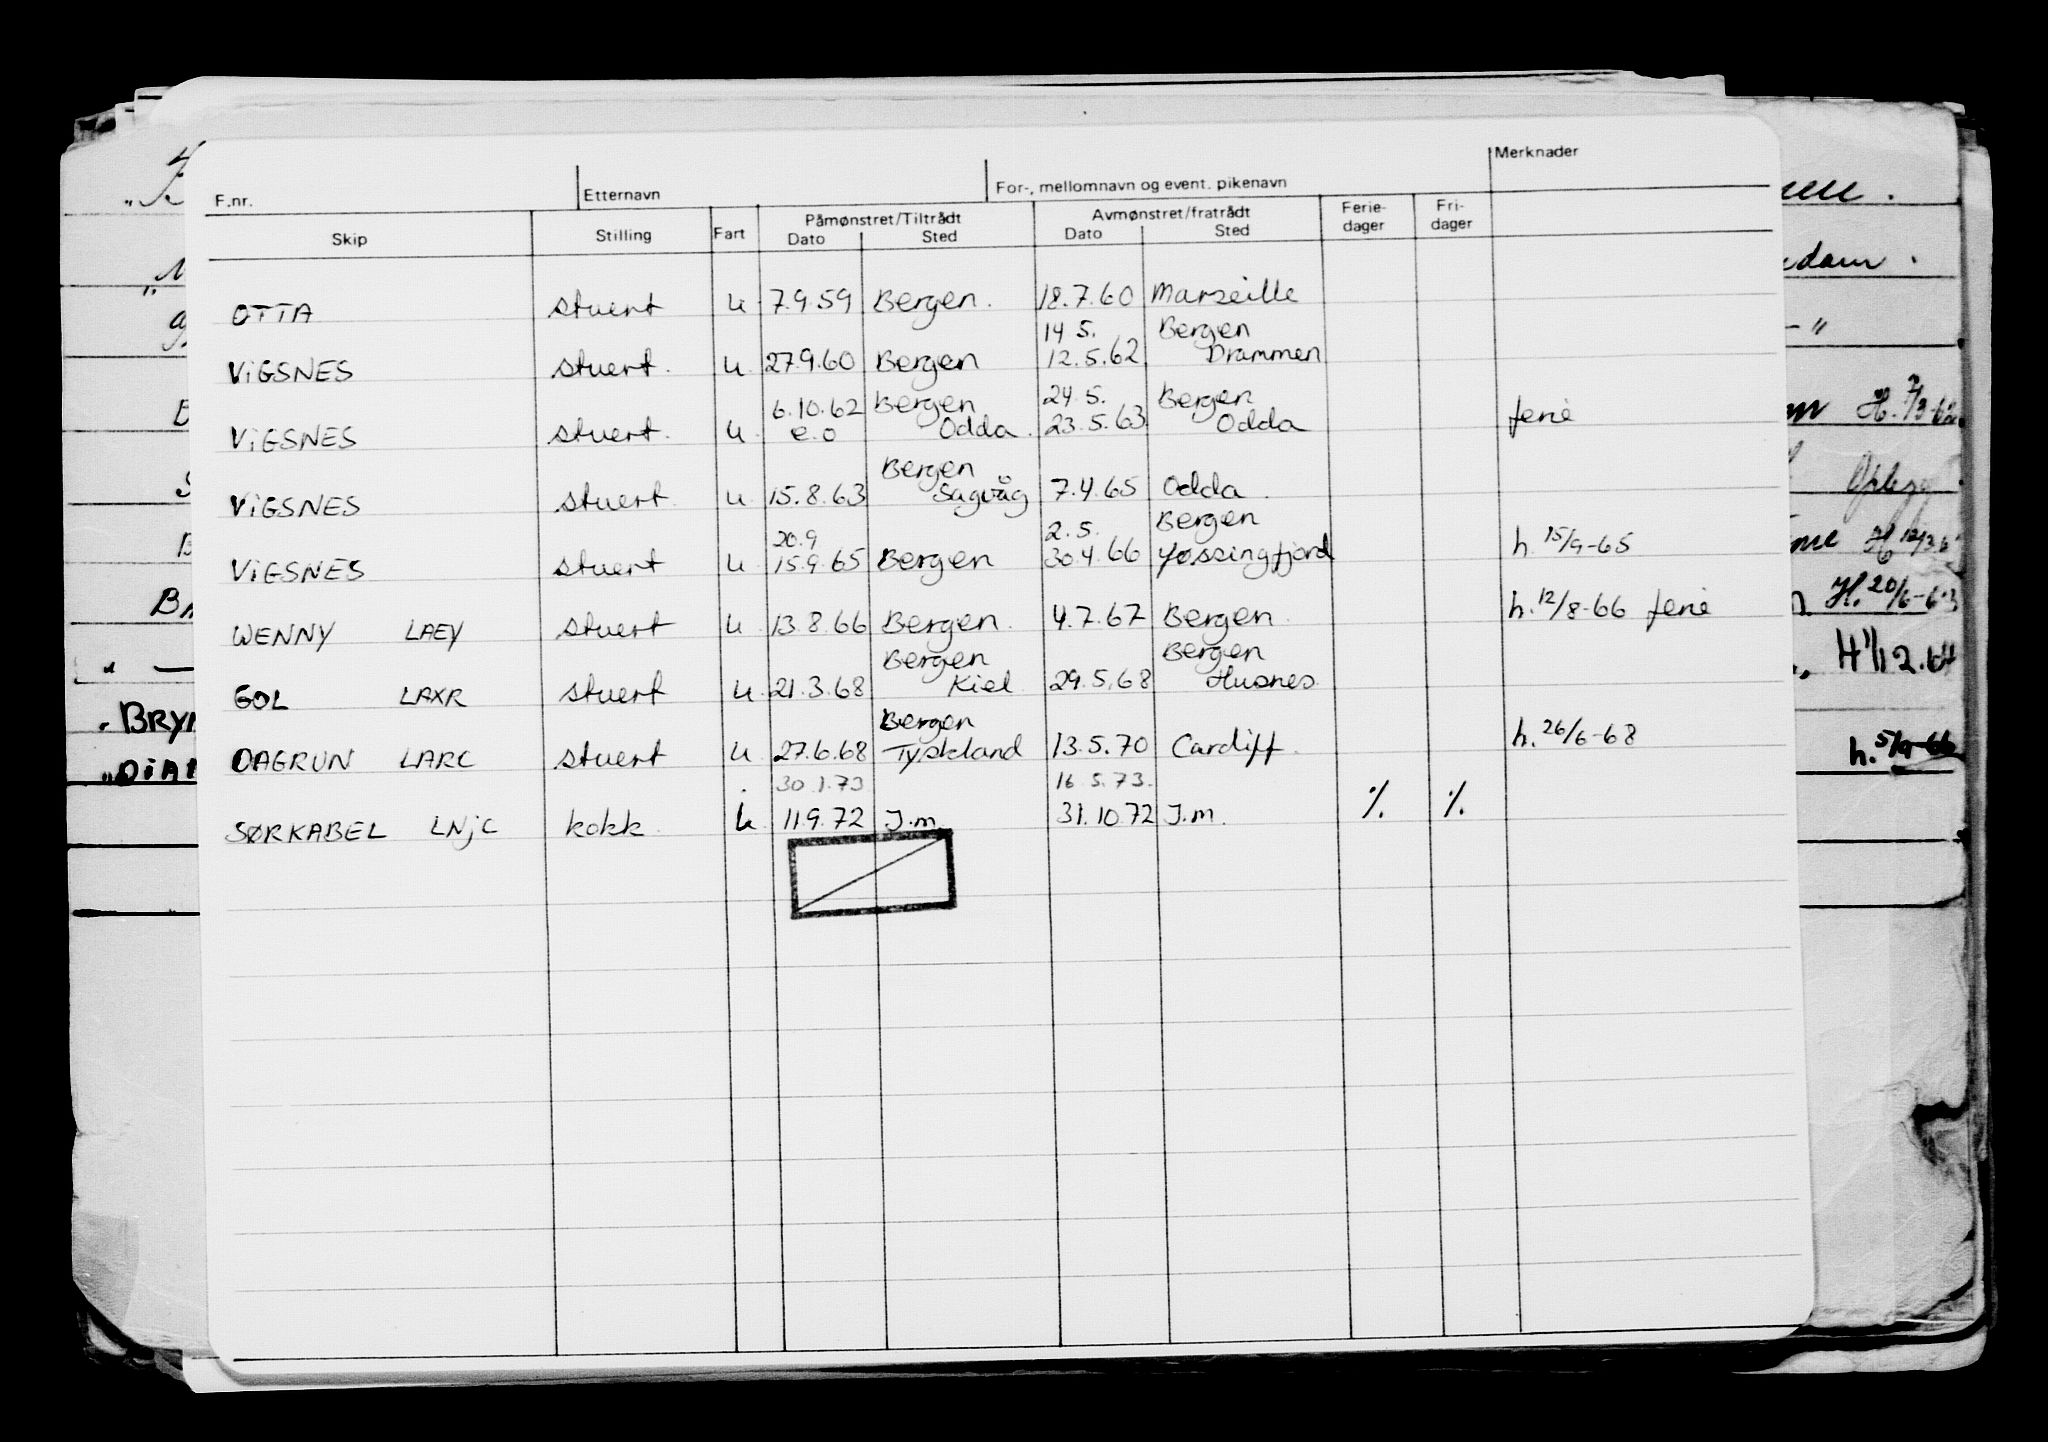 F.nr. Etternavn For-, mellomnavn og event. pikenavn Merknader
Skip Stilling Fart Påmønstret/Tiltrådt Avmønstret/fratrådt Ferie-dager Fri-dager
Dato Sted Dato Sted
OTTA stuert u 7.9.59 Bergen. 18.7.60 Marseille
14 5. Bergen
VIGSNES stuert. u. 27.9.60 Bergen 12.5.62 Drammen
6.10.62 Bergen 24.5. Bergen
VIGSNES stuert. u. e.o Odda. 23.5.63 Odda ferie
Bergen
VIGSNES stuert. u 15.8.63 Sagvåg 7.4.65 Odda.
20.9 2.5. Bergen
VIGSNES stuert u 15.9.65 Bergen 30.4.66 Jøssingfjord h. 15/9-65
WENNY LAEY stuert u. 13.8.66 Bergen. 4.7.67 Bergen. h. 12/8-66 ferie
Bergen Bergen
GOL LAXR stuert u. 21.3.68 Kiel 29.5.68 Husnes.
Bergen
DAGRUN LARC stuert u 27.6.68 Tyskland 13.5.70 Cardiff. h. 26/6-68
30.1.73 16.5.73.
SØRKABEL LNJC kokk. k. 11.9.72 J.m. 31.10.72 J.m. ٪ ٪
H. 20/6-63
H 1/12.64
BRY
h. 5/9-66